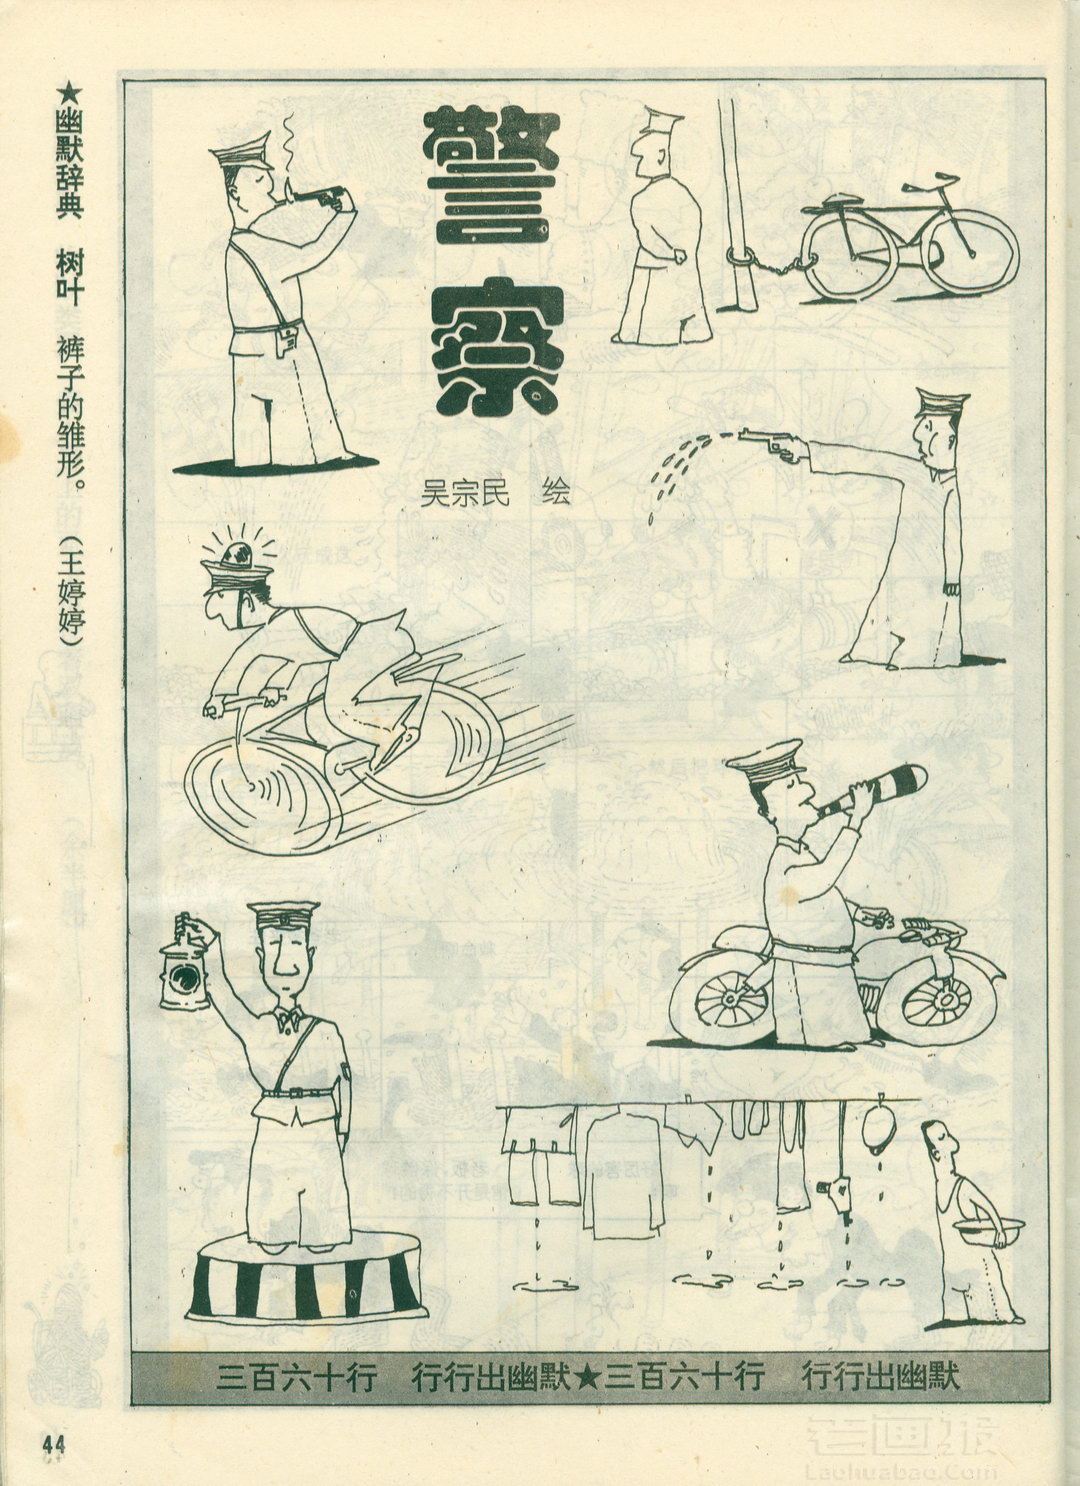 ★幽默辞典 树叶 裤子的雏形。(王婷婷)
警察
吴宗民 绘
三百六十行 行行出幽默★三百六十行 行行出幽默
44
老画报
Laohuabao.Com